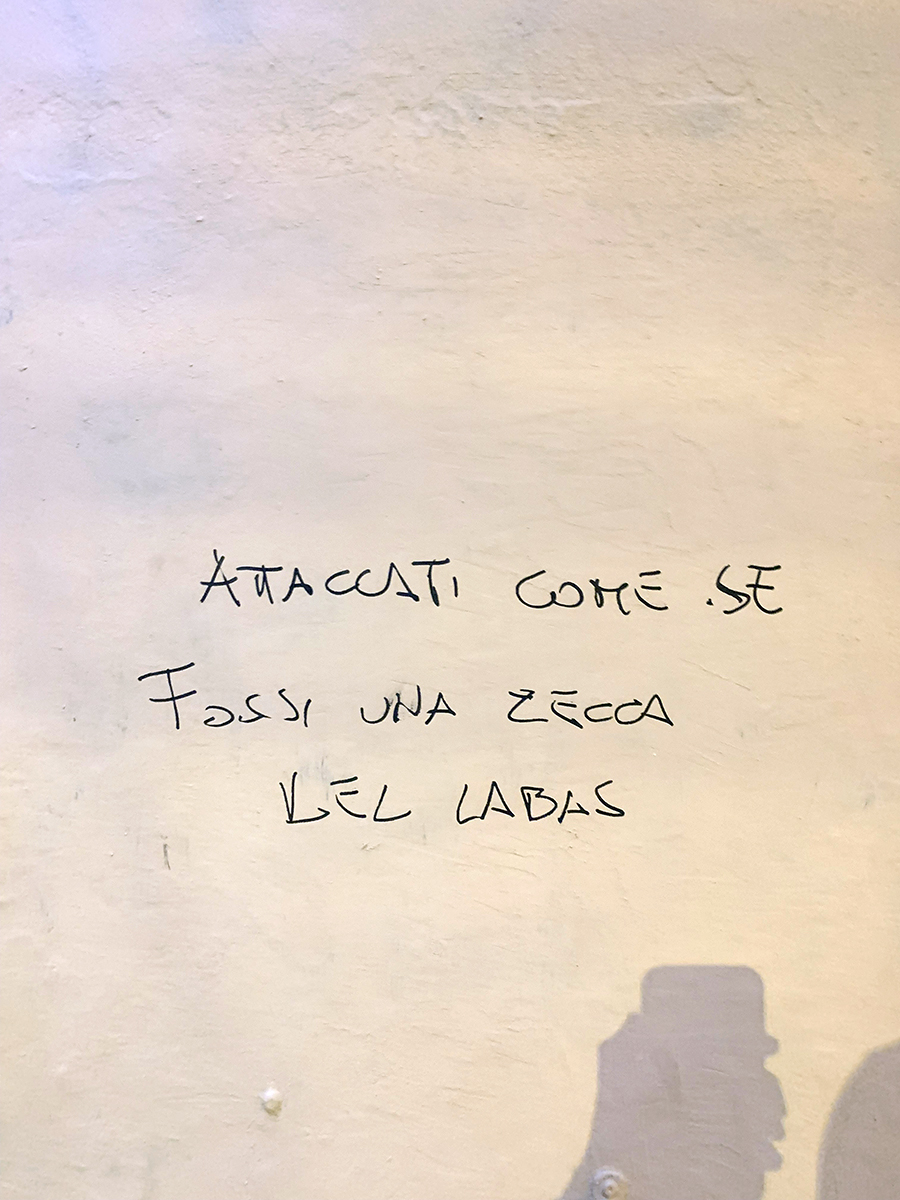 ATTACCATI COME SE
FOSSI UNA ZECCA
DEL LABAS